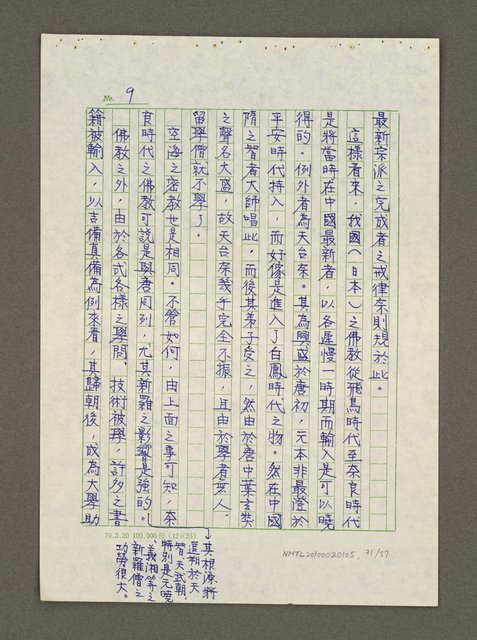 No. 9
最新宗派之完成者之戒律宗則規於此。
這樣看來，我國（日本）之佛教從飛鳥時代至奈良時代
是將當時在中國最新者，以各遲慢一時期而輸入是可以曉
得的。例外者為天台宗。其為興盛於唐初，元本非最澄於
平安時代持入，而好像是進入了白鳳時代之物。然在中國
隋之智者大師唱此，而後其弟子受之，然由於唐中葉玄奘
之聲名大盛，故天台宗幾乎完全不振，且由於學者無人，
留學僧就不學了。
空海之密教也是相同。不管如何，由上面之事可知，奈
良時代之佛教可說是與唐同列，尤其新羅之影響是強的。
佛教之外，由於各式各樣之學問、技術被學，許多之書
籍被輸入，以吉備真備為例來看，其歸朝後，成為大學助
其根源將
這期於天
智天武朝，
特別是元曉
、義湘等之
新羅僧之
功勞很大。
70.3.20 100.000份 (12×25)
NMTL20100020105, 31/57